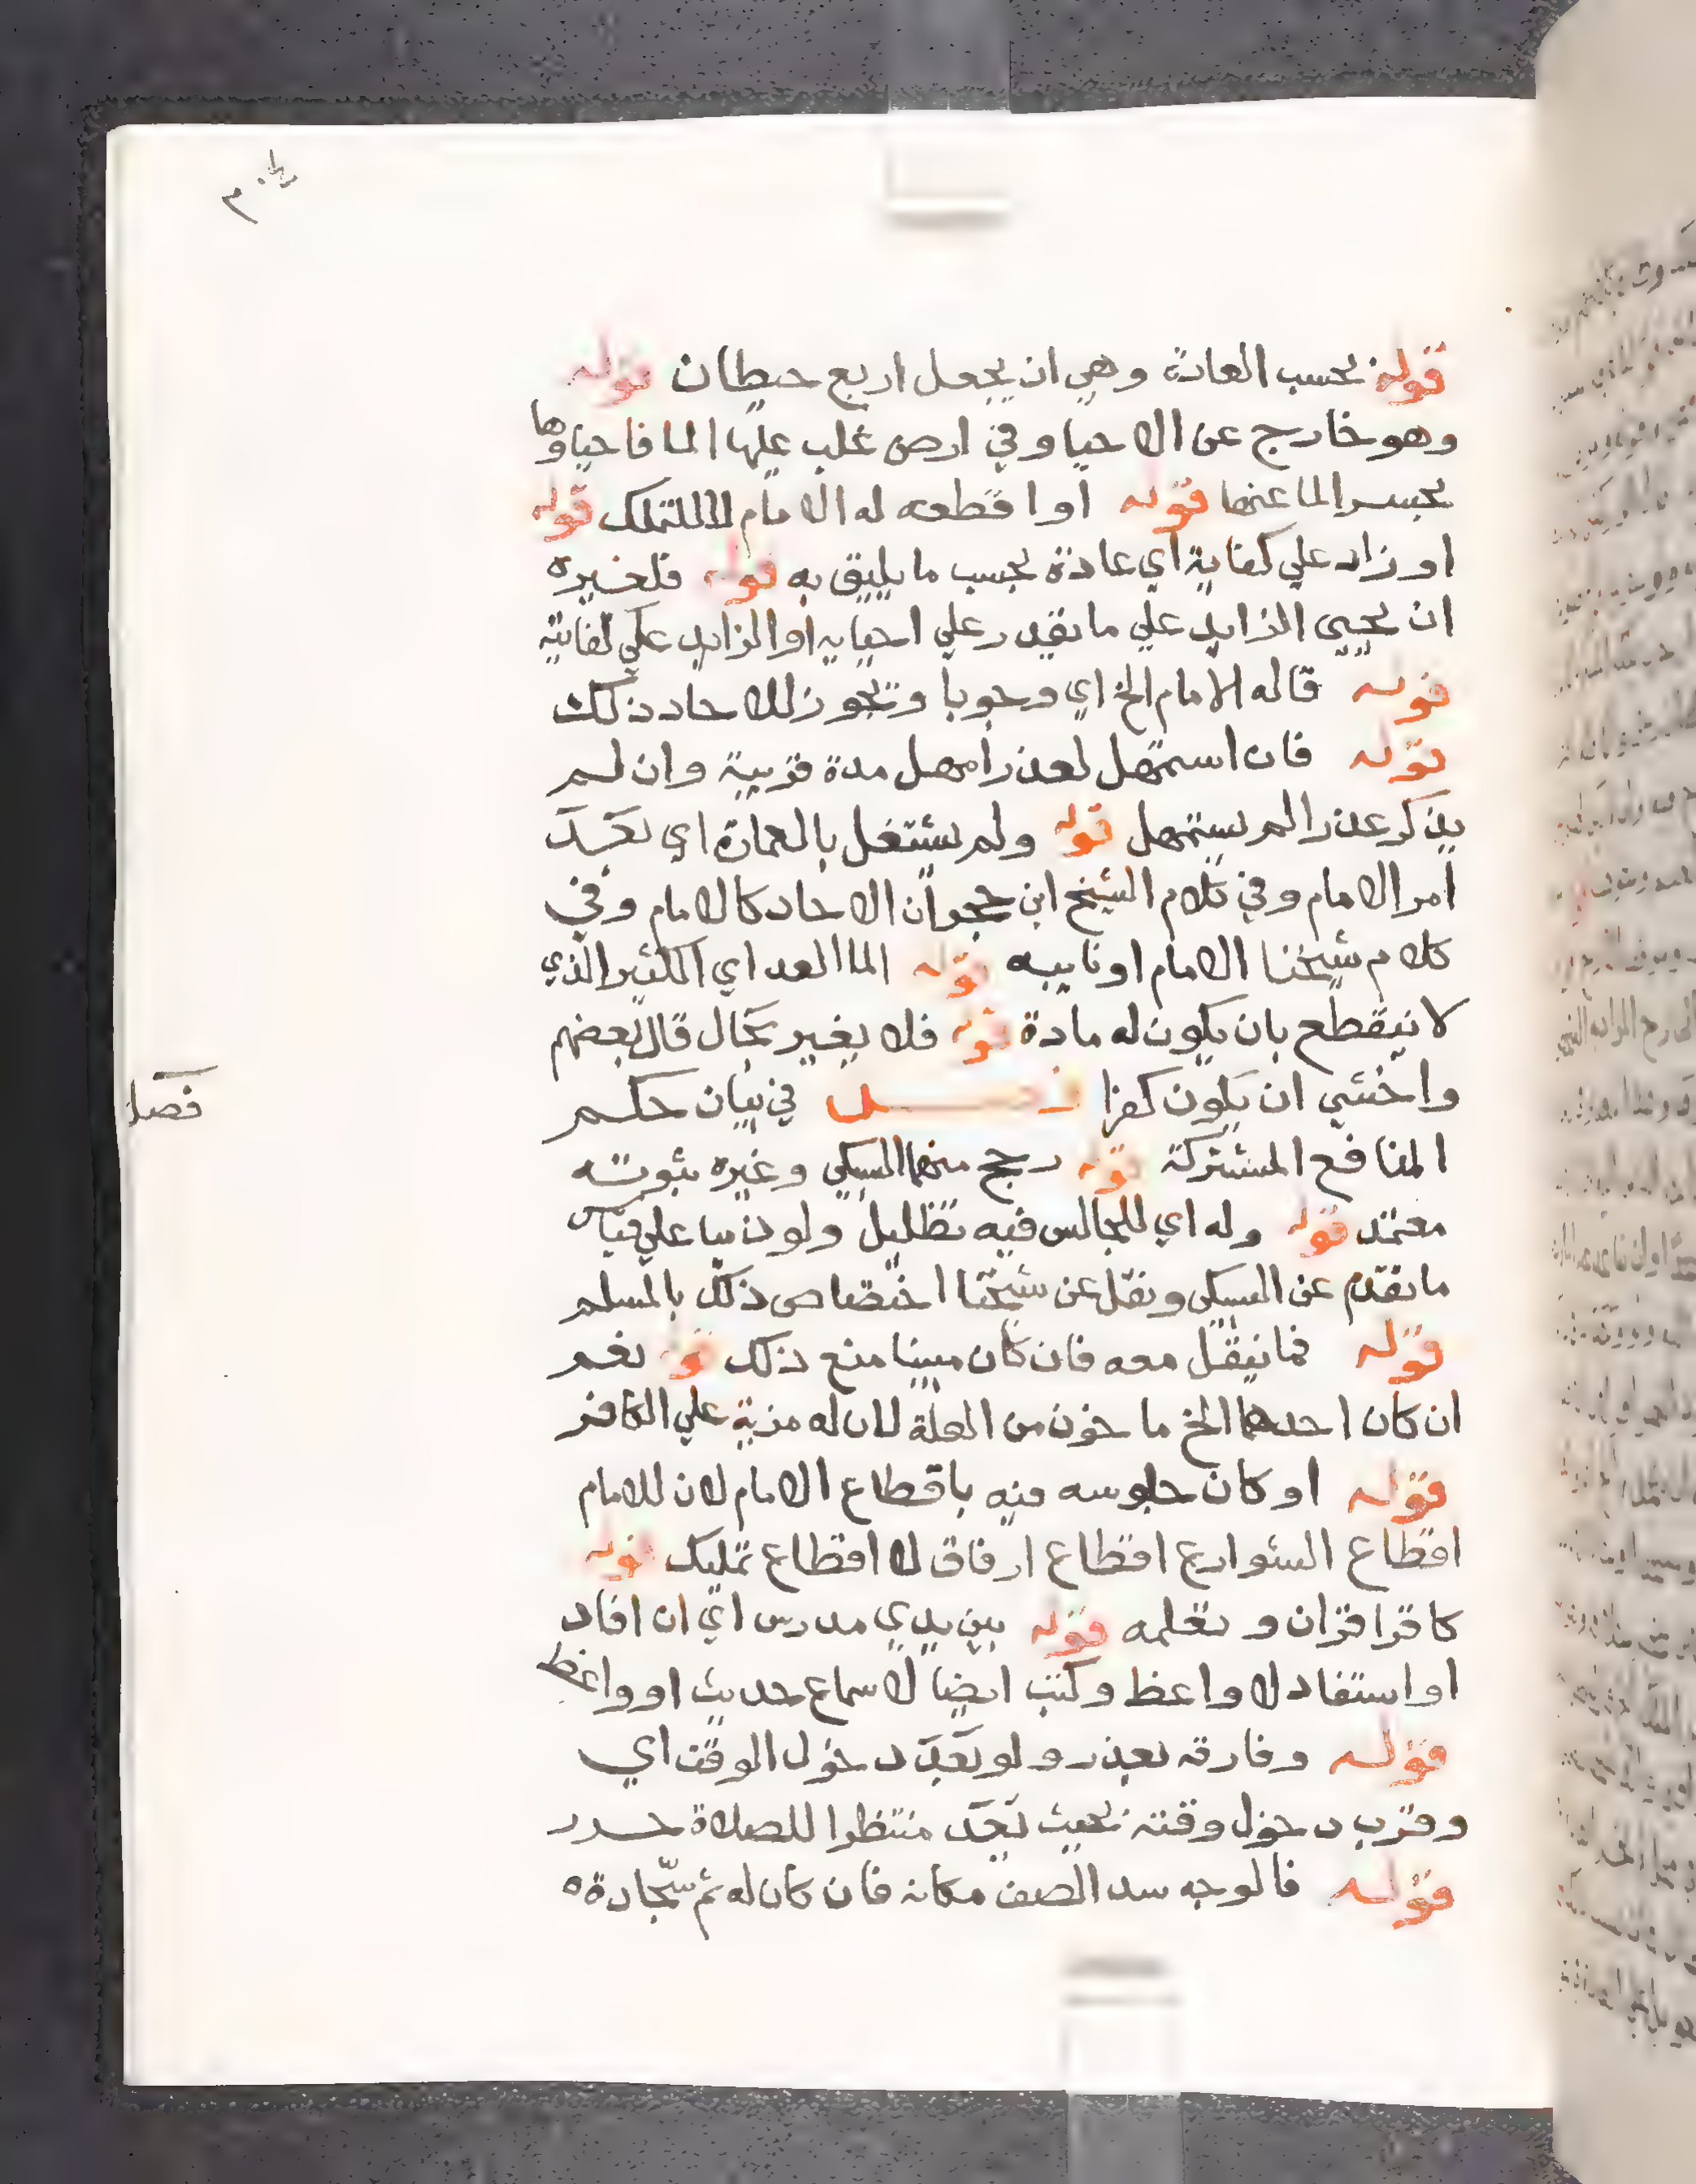 ٣٠٤
قوله بحسب العادة وهي ان يجعل اربع حيطان قوله
وهو خارج عن الاحيا وفي ارض غلب عليها الما فاحياوها
بحبس الما عنها قوله او اقطعه له الامام لا للتملك قوله
او زاد علي كفايته اي عادة بحسب ما يليق به قوله فلغيره
ان يحيي الزايد علي ما يقدر علي احيايه او الزايد علي كفايته
قوله قاله الامام الخ اي وجوبا وتجوز للاحاد ذلك
قوله فان استمهل لعذر امهل مدة قريبة وان لم
يذكر عذرا لم يستمهل قوله ولم يشتغل بالعمارة اي بعد
امر الامام وفي كلام الشيخ ابن حجر ان الاحاد كالامام وفي
كلام شيخنا الامام او نايبه قوله الما العد اي الكثير الذي
لا ينقطع بان يكون له مادة قوله فلا يغير بحال قال بعضهم
واخشي ان يكون كفرا فصل في بيان حكم
فصل
المنافع المشتركة قوله رجح منهما السبكي وغيره ثبوته
معتمد قوله وله اي للجالس فيه تظليل ولو ذميا علي قياس
ما تقدم عن السبكي ونقل عن شيخنا اختصاص ذلك بالمسلم
قوله فما ينقل معه فان كان مبينا منع ذلك قوله نعم
ان كان احدهما الخ ماخوذ من العلة لان له مزية علي الكافر
قوله او كان جلوسه فيه باقطاع الامام لان للامام
اقطاع الشوارع اقطاع ارفاق لا اقطاع تمليك قوله
كاقرا قران وتعلمه قوله بين يدي مدرس اي ان افاد
او استفاد لا واعظ وكتب ايضا لا سماع حديث او واعظ
قوله وفارقه بعذر ولو بعد دخول الوقت اي
وقرب دخول وقته بحيث يعد منتظرا للصلاة
قوله فالوجه سد الصف مكانه فان كان له ثم سجادة